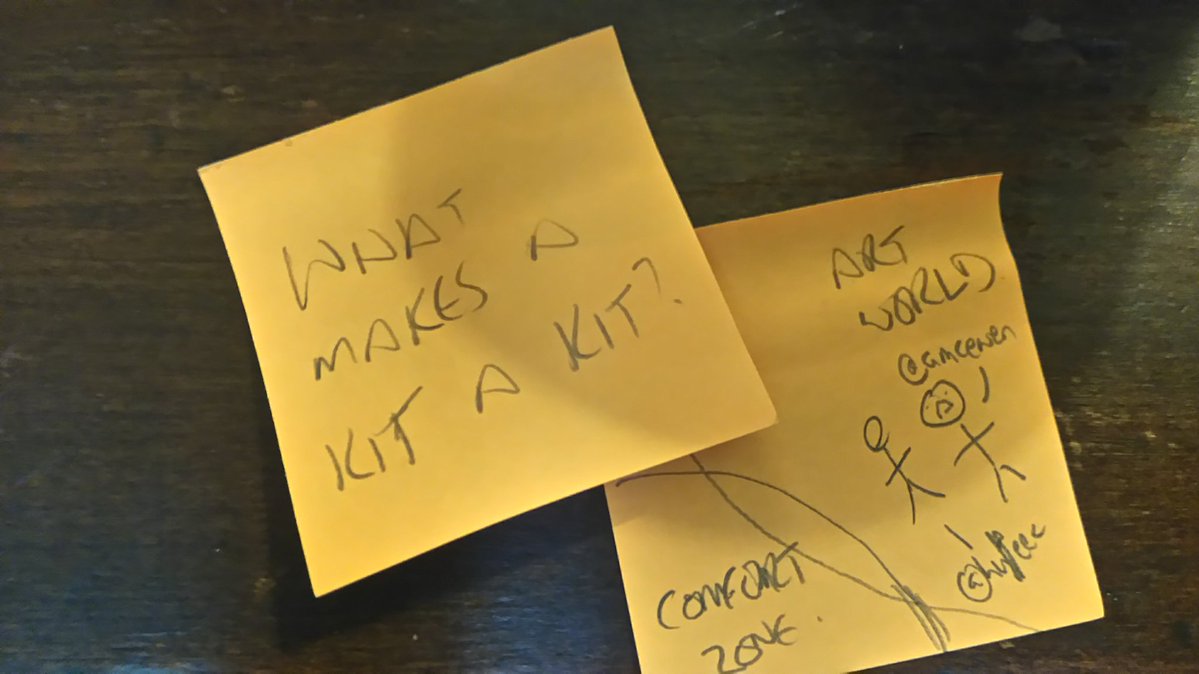 WHAT
MAKES A
KIT A KIT?
ART
WORLD
@amcewen
COMFORT
ZONE.